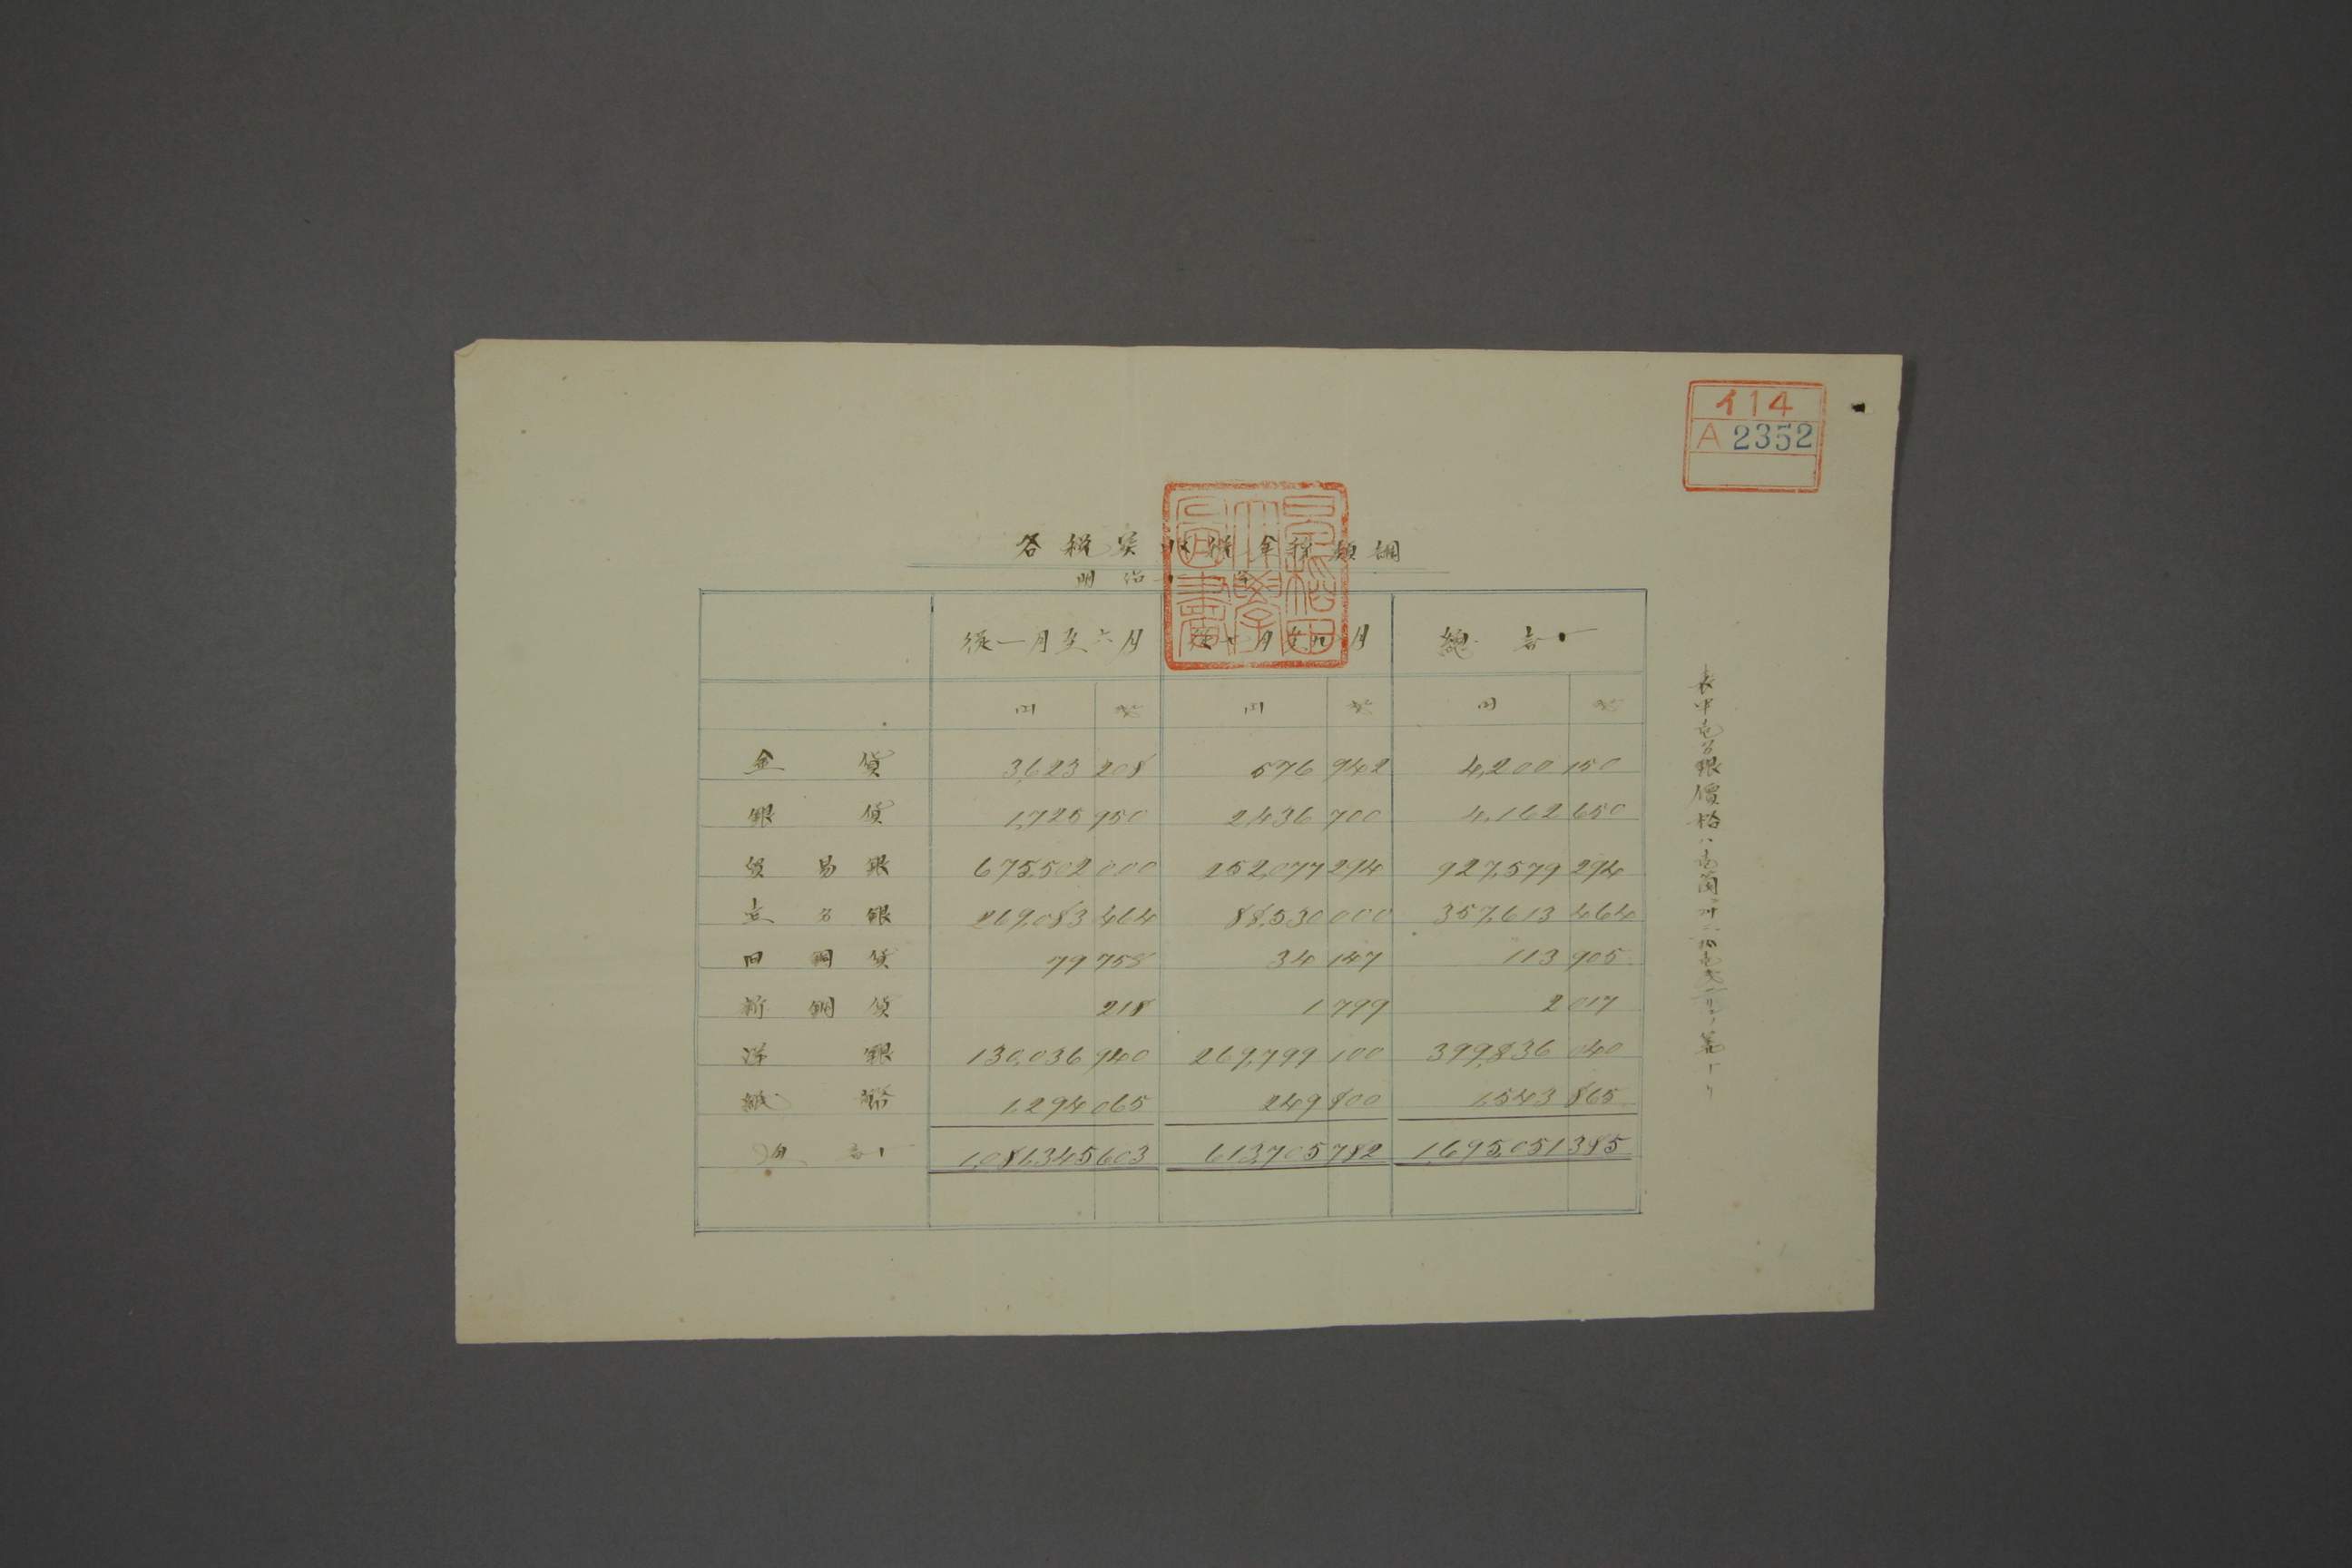 イ14
A 2352
早稲田
大學
圖書
各税実収 金種類調
明治十 年
従一月至六月 月 月 總計
円 円 円
金貨 3,623 208 576 942 4,200 150
銀貨 1,725 950 2,436 700 4,162 650
貿易銀 675,502 000 252,077 294 927,579 294
壱分銀 269,083 464 88,530 000 357,613 464
旧銅貨 79 758 34 147 113 905
新銅貨 218 1 799 2 017
洋銀 130,036 940 269,799 100 399,836 040
紙幣 1,294 065 249 800 1,543 865
合計 1,081,345 603 613,705 782 1,695,051 385
表中壱分銀價格ハ壱箇ニ付